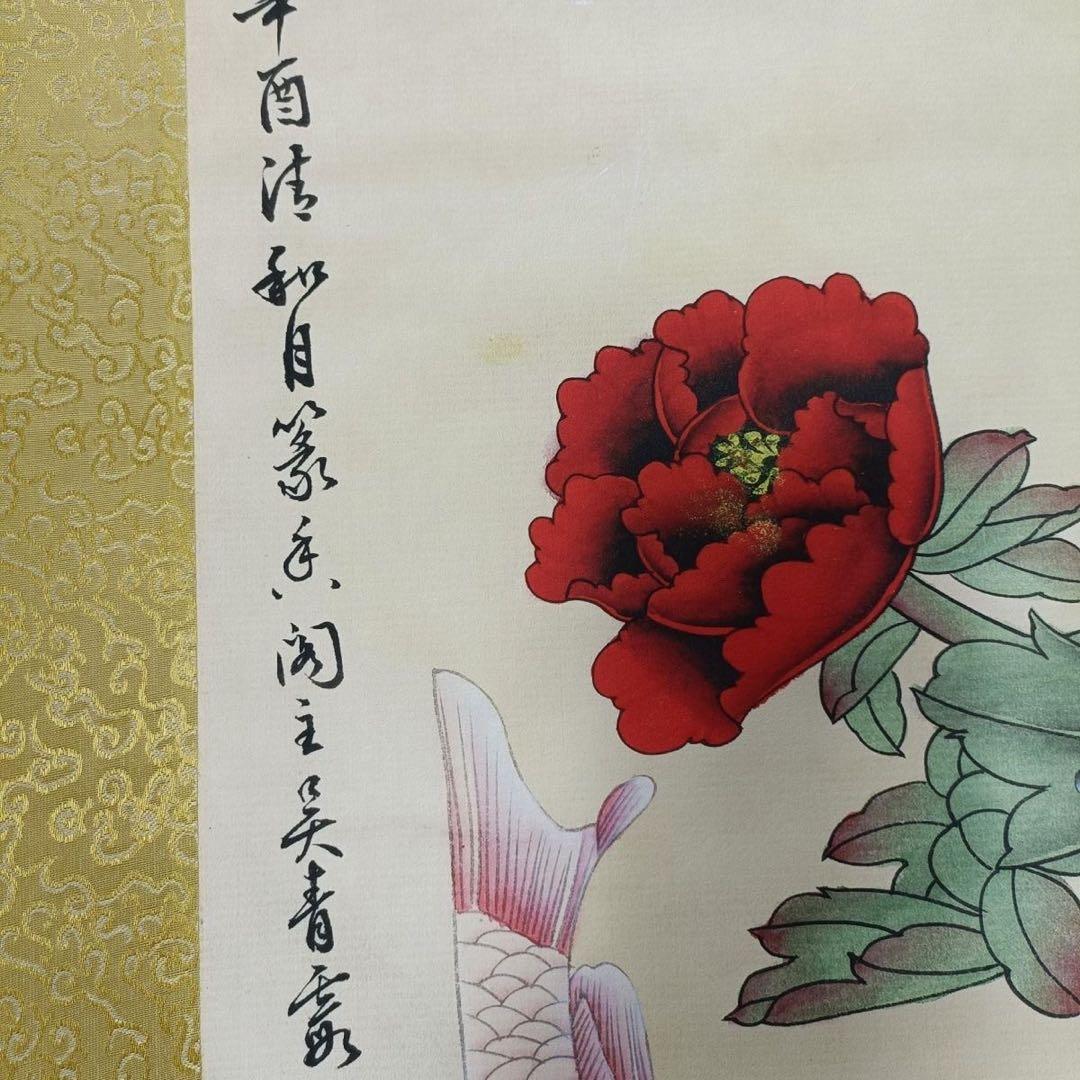 辛酉清和月篆香阁主吴青霞